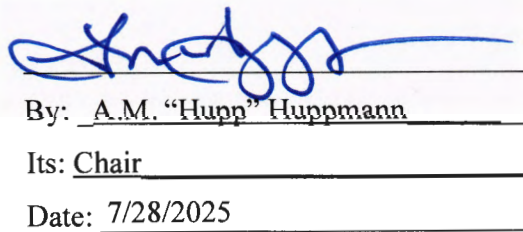 By: A.M. “Hupp” Huppmann
Its: Chair
Date: 7/28/2025